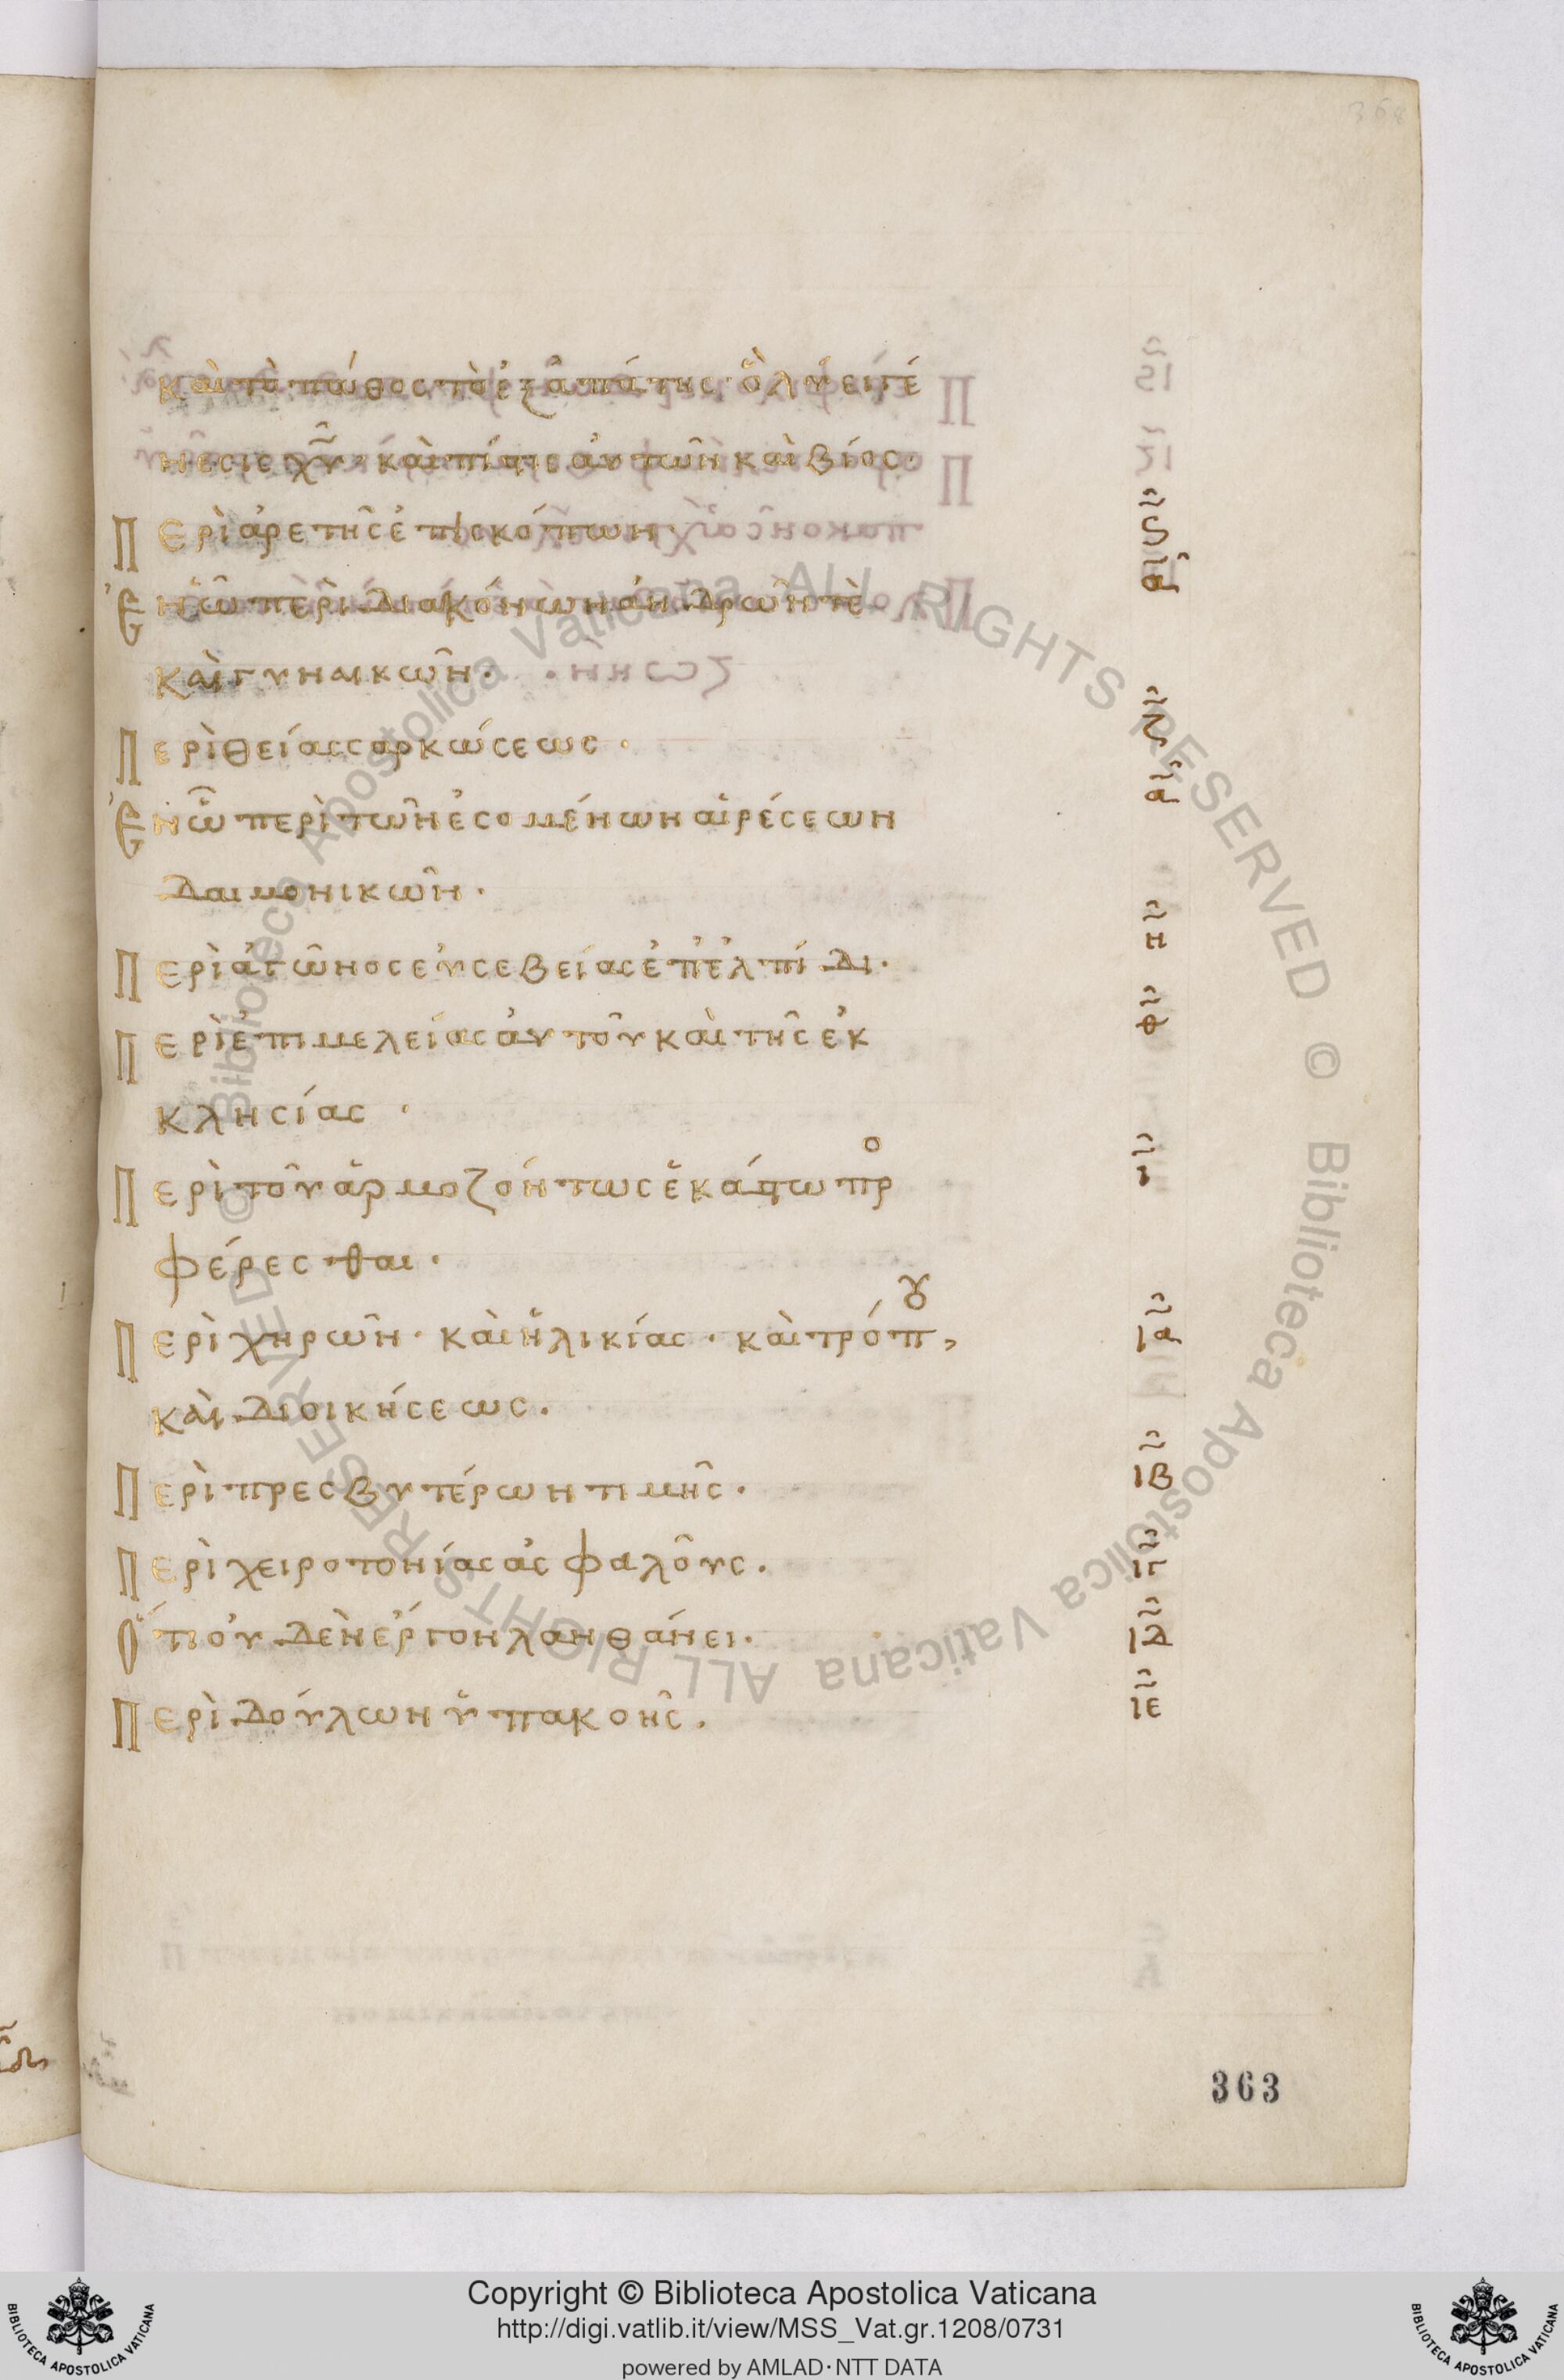 καὶ τὸ πάθος τὸ ἐξ ἀπάτης ὃ λύει γέ
νεσις χυ· καὶ πίστις αὐτῶν καὶ βίος·
Περὶ ἀρετῆς ἐπισκόπων· ς
Ἐν ᾧ περὶ διακόνων ἀνδρῶν τὲ α
καὶ γυναικῶν·
Περὶ θείας σαρκώσεως· ζ
Ἐν ᾧ περὶ τῶν ἐσομένων αἱρέσεων α
δαιμονικῶν·
Περὶ ἀγῶνος εὐσεβείας ἐπ' ἐλπίδι· η
Περὶ ἐπιμελείας αὐτοῦ καὶ τῆς ἐκ θ
κλησίας·
Περὶ τοῦ ἁρμοζόντως ἑκάστω προ ι
φέρεσθαι·
Περὶ χηρῶν· καὶ ἡλικίας· καὶ τρόπου, ια
καὶ διοικήσεως·
Περὶ πρεσβυτέρων τιμῆς· ιβ
Περὶ χειροτονίας ἀσφαλοῦς· ιγ
Ὅτι οὐδὲν ἔργον λανθάνει· ιδ
Περὶ δούλων ὑπακοῆς· ιε
363
Copyright © Biblioteca Apostolica Vaticana
http://digi.vatlib.it/view/MSS_Vat.gr.1208/0731
powered by AMLAD·NTT DATA
BIBLIOTECA APOSTOLICA VATICANA
BIBLIOTECA APOSTOLICA VATICANA
© Biblioteca Apostolica Vaticana ALL RIGHTS RESERVED
© Biblioteca Apostolica Vaticana ALL RIGHTS RESERVED